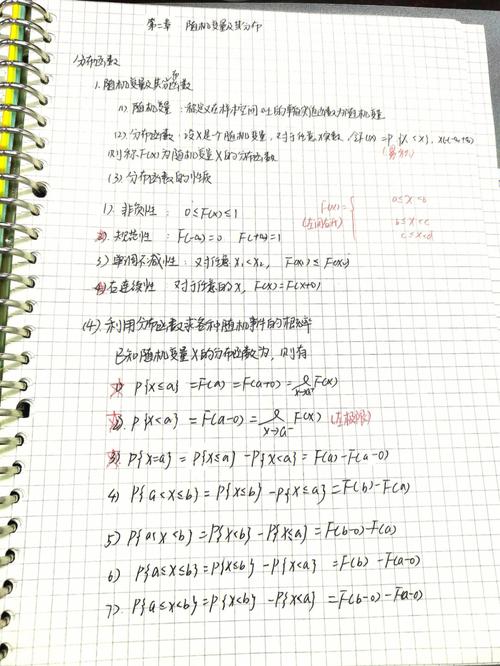 第二章 随机变量及其分布
分布函数
1.随机变量及其分布函数
(1) 随机变量:称定义在样本空间Ω上的单值实值函数为随机变量
(2)分布函数:设X是个随机变量,对于任意实数 P{X≤x}, x∈(-∞,+∞)
则称F(x)为随机变量X的分布函数
(3)分布函数的性质
1) 非负性: 0≤F(x)≤1
F(x)={ a≤x<b
(左闭右开) b≤x<c
c≤x<d
2) 规范性: F(-∞)=0 F(+∞)=1
3)单调不减性:对任意x₁<x₂, F(x₁)≤F(x₂)
4)右连续性 对于任意的x, F(x)=F(x+0)
(4).利用分布函数求各种随机事件的概率
已知随机变量X的分布函数为,则有
1) P{X≤a}=F(a)=F(a+0)= F(x)
2) P{X<a}=F(a-0)= x→a⁻ F(x) (左极限)
3) P{X=a}=P{X≤a}-P{X<a}=F(a)-F(a-0)
4) P{a<X≤b}=P{X≤b}-P{X≤a}=F(b)-F(a)
5) P{a<X<b}=P{X<b}-P{X≤a}=F(b-0)-F(a)
6) P{a≤X≤b}=P{X≤b}-P{X<a} =F(b)-F(a-0)
7) P{a≤X<b}=P{X<b}-P{X<a} =F(b-0)-F(a-0)